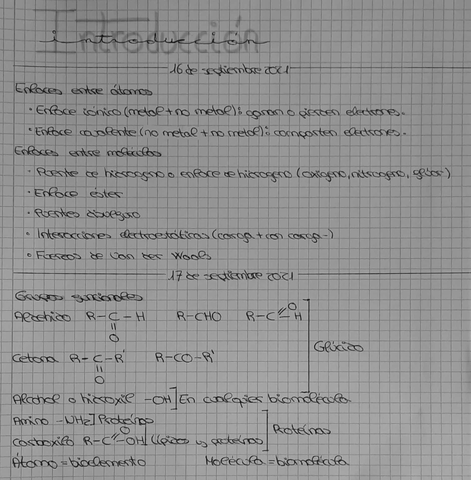 Introducción
introducción
16 de septiembre 2021
Enlaces entre átomos
· Enlace iónico (metal + no metal): ganan o pierden electrones.
· Enlace covalente (no metal + no metal): comparten electrones.
Enlaces entre moléculas
· Puente de hidrógeno o enlace de hidrógeno (oxígeno, nitrógeno, flúor)
· Enlace éster
· Puentes disulfuro
· Interacciones electroestáticas (carga + con carga -)
· Fuerzas de Van der Waals
17 de septiembre 2021
Grupos funcionales
Aldehído R-C-H R-CHO R-C=H
O
O
Glúcido
Cetona R-C-R' R-CO-R'
O
Alcohol o hidroxilo -OH] En cualquier biomolécula
Amino -NH2] Proteínas
Carboxilo R-C=OH (lípidos y proteínas)
O
Proteínas
Átomo = bioelemento Molécula = biomolécula